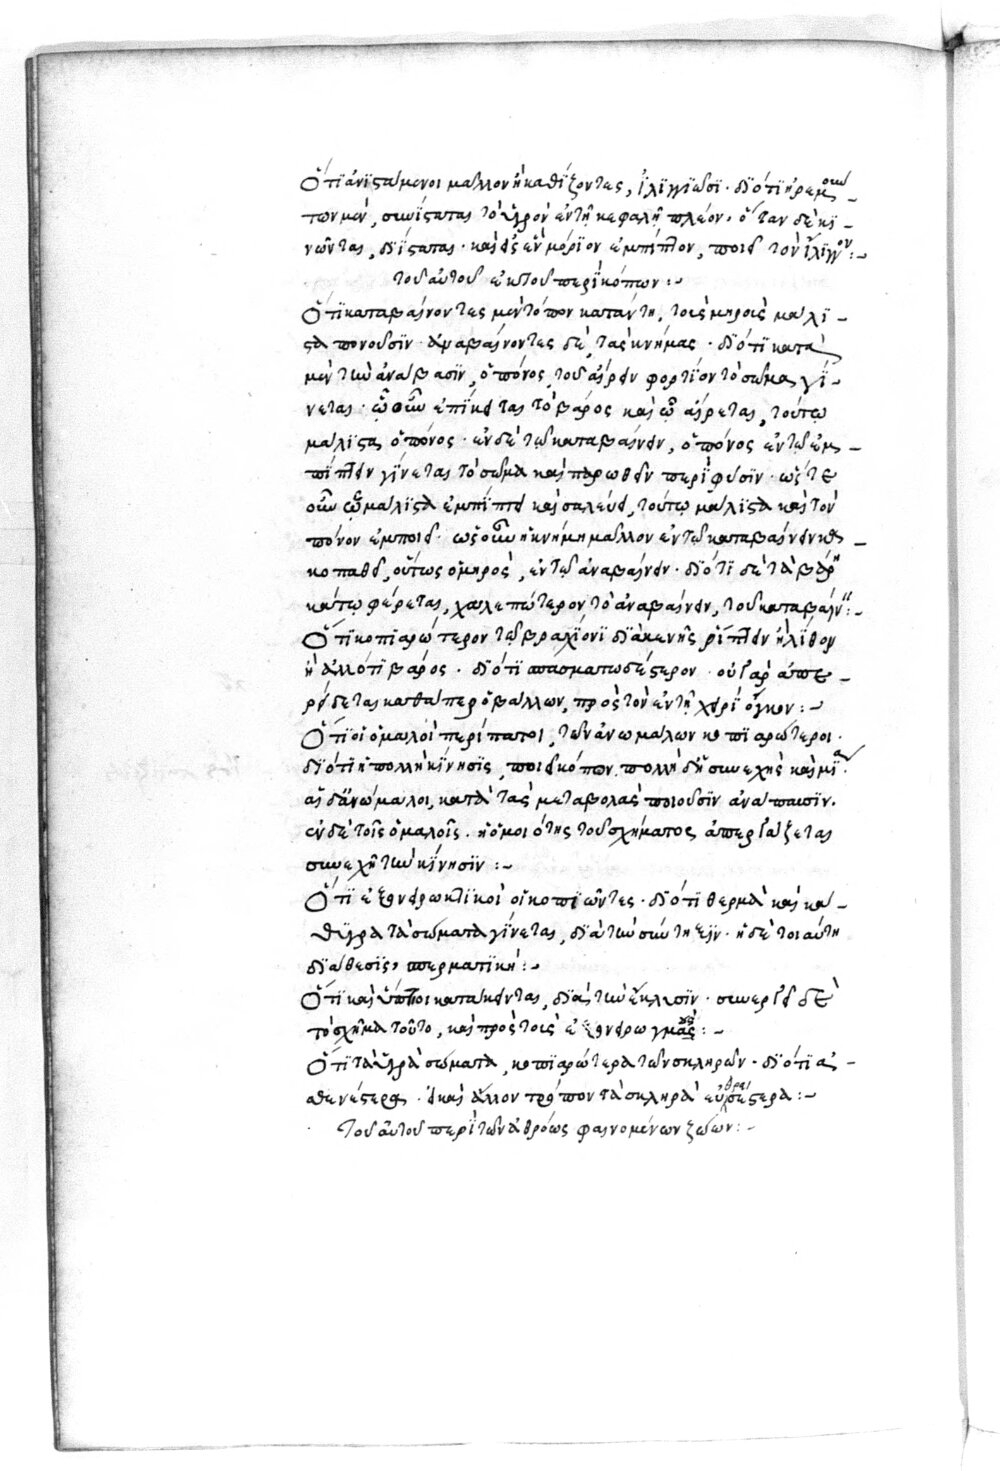 Ὅτι ἀνιστάμενοι μᾶλλον ἢ καθίζοντες, ἰλιγγιῶσι· διότι ἠρεμούν
των μὲν, συνίσταται τὸ ὑγρὸν ἐν τῇ κεφαλῇ πλέον· ὅταν δὲ κι
νῶνται, διΐσταται· καὶ εἰς ἓν μόριον ἐμπίπτον, ποιεῖ τὸν ἴλιγγον:~
τοῦ αὐτοῦ ἐκ τοῦ περὶ κόπων:~
Ὅτι καταβαίνοντες μὲν τόπον κατάντη, τοῖς μηροῖς μάλι
στα πονοῦσιν· ἀναβαίνοντες δὲ, τὰς κνήμας· διότι κατὰ
μὲν τὴν ἀνάβασιν, ὁ πόνος τοῦ αἴρειν φορτίον τὸ σῶμα γί
νεται· ᾧ οὖν ἐπίκειται τὸ βάρος καὶ ᾧ αἴρεται, τούτῳ
μάλιστα ὁ πόνος· ἐν δὲ τῷ καταβαίνειν, ὁ πόνος ἐν τῷ ἐμ
πίπτειν γίνεται τὸ σῶμα καὶ παρωθεῖν περὶ φύσιν· ὥστε
οὖν ᾧ μάλιστα ἐμπίπτει καὶ σαλεύει, τούτῳ μάλιστα καὶ τὸν
πόνον ἐμποιεῖ· ὡς οὖν ἡ κνήμη μᾶλλον ἐν τῷ καταβαίνειν κα
κοπαθεῖ, οὕτως ὁ μηρὸς, ἐν τῷ ἀναβαίνειν· διότι δὲ τὰ βάρη
κάτω φέρεται, χαλεπώτερον τὸ ἀναβαίνειν, τοῦ καταβαίνειν:~
Ὅτι κοπιαρώτερον τῷ βραχίονι διὰ κενῆς ῥίπτειν ἢ λίθον
ἢ ἄλλό τι βάρος· διότι σπασματωδέστερον· οὐ γὰρ ἀπε
ρείδεται καθάπερ ὁ βάλλων, πρὸς τὸν ἐν τῇ χειρὶ ὄγκον:~
Ὅτι οἱ ὁμαλοὶ περίπατοι, τῶν ἀνωμάλων κοπιαρώτεροι·
διότι ἡ πολλὴ κίνησις, ποιεῖ κόπον. πολλὴ δ' ἡ συνεχὴς καὶ μία·
αἱ δ' ἀνώμαλοι, κατὰ τὰς μεταβολὰς ποιοῦσιν ἀνάπαυσιν.
ἐν δὲ τοῖς ὁμαλοῖς, ἡ ὁμοιότης τοῦ σχήματος ἀπεργάζεται
συνεχῆ τὴν κίνησιν:~
Ὅτι ἐξονειρωκτικοὶ οἱ κοπιῶντες· διότι θερμὰ καὶ κά
θυγρα τὰ σώματα γίνεται, διὰ τὴν σύντηξιν· ἡ δὲ τοιαύτη
διάθεσις, σπερματική:~
Ὅτι καὶ ὕπτιοι κατάκεινται, διὰ τὴν ἔκλυσιν· συνεργεῖ δὲ
τὸ σχῆμα τοῦτο, καὶ πρὸς τοὺς ἐξονειρωγμούς:~
Ὅτι τὰ ὑγρὰ σώματα, κοπιαρώτερα τῶν σκληρῶν· διότι ἀσ
θενέστερα· εἰ καὶ ἄλλον τρόπον τὰ σκληρὰ εὐθραυστότερα:~
Τοῦ αὐτοῦ περὶ τῶν ἀθρόως φαινομένων ζώων:~